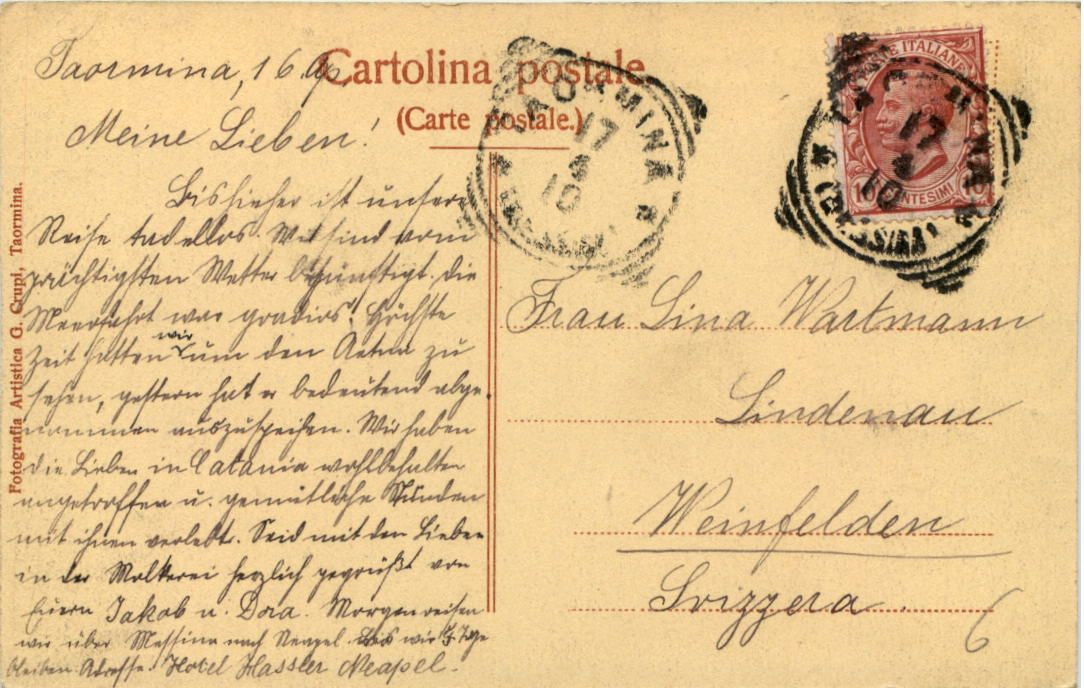 Cartolina postale
(Carte postale.)
Taormina, 16. Ap.
Meine Lieben!
Bishieher ist unsere
Reise tadellos. Wir sind vom
prächtigsten Wetter begünstigt, die
Meerfahrt war grandios! Höchste
Zeit hatten wir um den Aetna zu
sehen, gestern hat er bedeutend abge-
nommen auszuspeihen. Wir haben
die Lieben in Catania wohlbehalten
angetroffen u. gemütliche Stunden
mit ihnen verlebt. Seid mit den Lieben
in der Molkerei herzlich gegrüßt von
Euern Jakob u. Dora. Morgen reisen
wir über Messina nach Neapel. wir Tage
bleiben. Adresse: Hotel Hassler Neapel.
Frau Lina Wartmann
Lindenau
Weinfelden
Svizzera.
6
Fotografia Artistica G. Crupi, Taormina.
TAORMINA
17
4
10
(MESSINA)
POSTE ITALIANE
CENTESIMI 10
TAORMINA
17
4
10
(MESSINA)